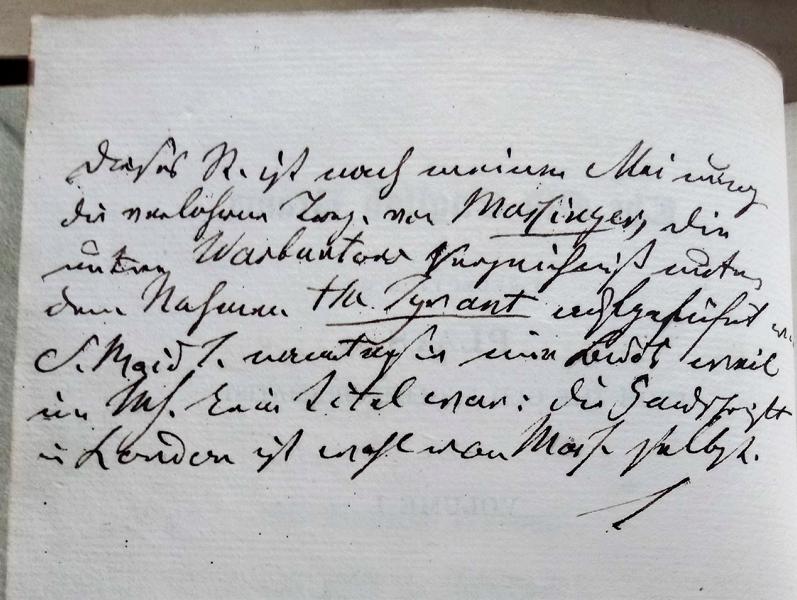 Dieses St. ist nach meiner Meinung
die verlohrne Trag. von Massinger, die
unter Warburtons Verzeichniß unter
dem Nahmen the Tyrant aufgeführt
S. Maid T. nur weil
im Ms. kein Titel war: die Handschrift
in London ist wohl von Mass. selbst.